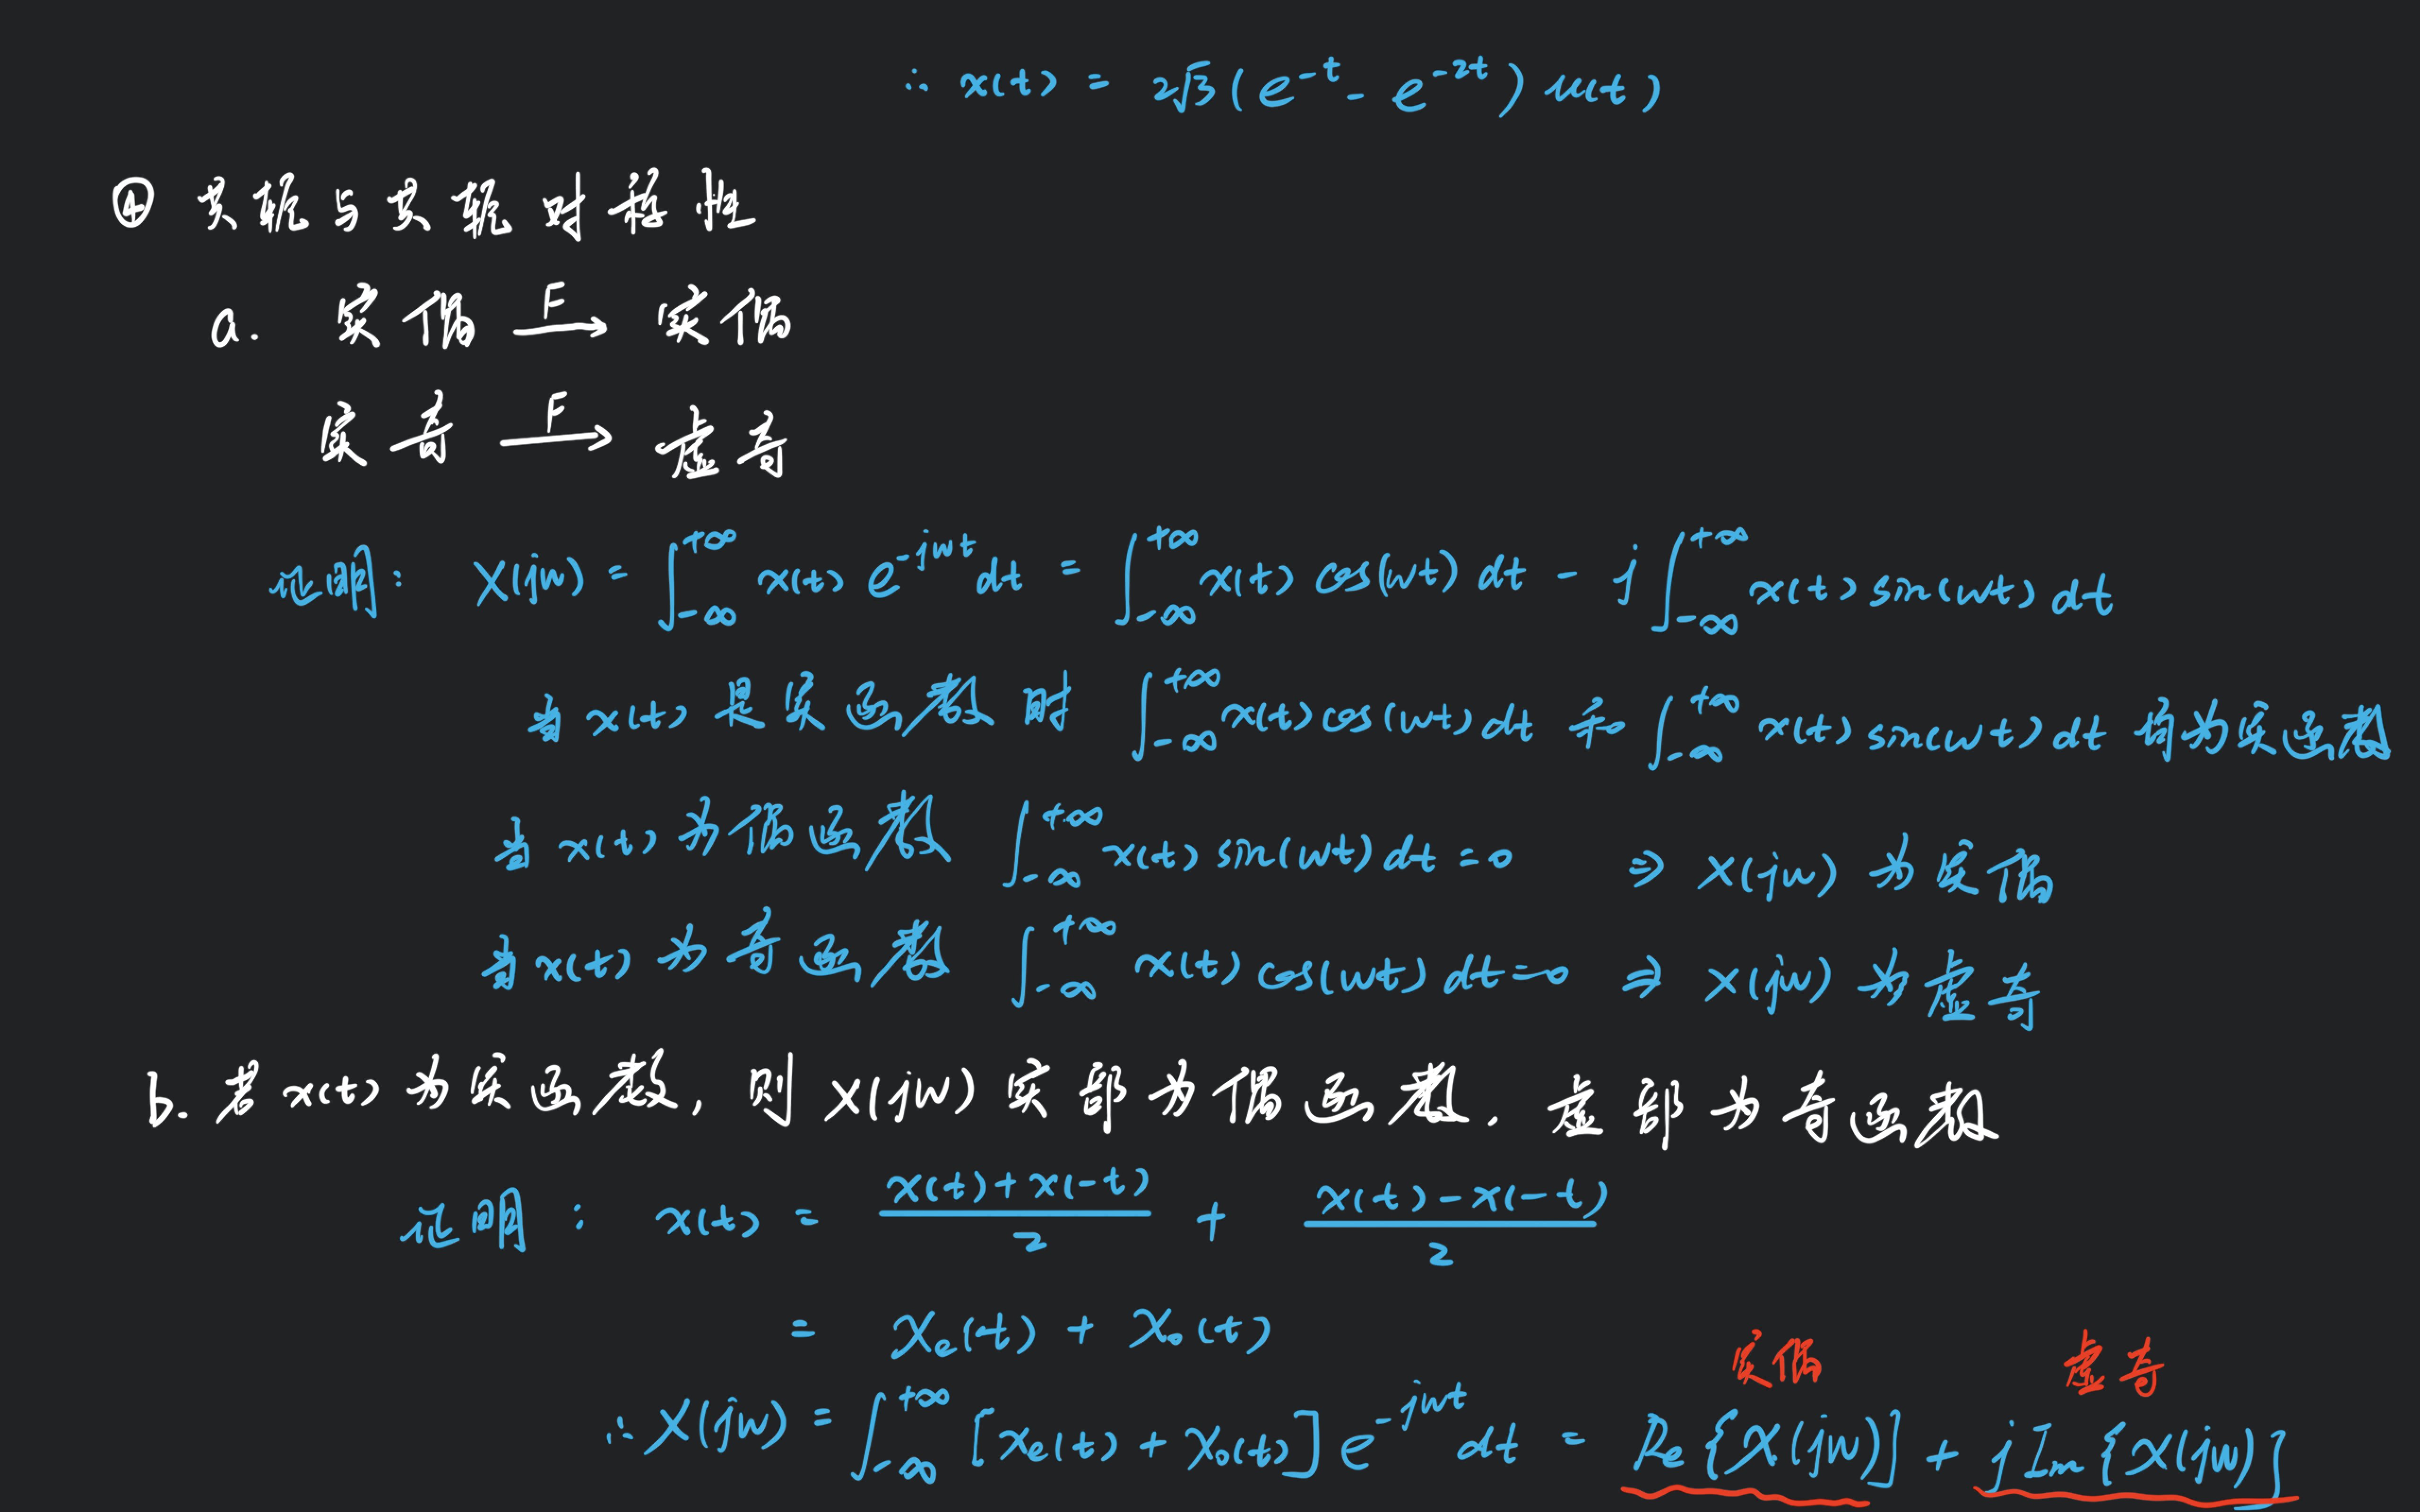 ∴ x(t) = 2√3 (e^{-t} - e^{-2t}) u(t)
④ 共轭与共轭对称性
a. 实偶 —F→ 实偶
实奇 —F→ 虚奇
证明: X(jw) = ∫_{-∞}^{+∞} x(t) e^{-jwt} dt = ∫_{-∞}^{+∞} x(t) cos(wt) dt - j∫_{-∞}^{+∞} x(t) sin(wt) dt
当 x(t) 是实函数时 ∫_{-∞}^{+∞} x(t) cos(wt) dt 和 ∫_{-∞}^{+∞} x(t) sin(wt) dt 均为实函数
当 x(t) 为偶函数 ∫_{-∞}^{+∞} x(t) sin(wt) dt = 0 ⇒ X(jw) 为实偶
当 x(t) 为奇函数 ∫_{-∞}^{+∞} x(t) cos(wt) dt = 0 ⇒ X(jw) 为虚奇
b. 若 x(t) 为实函数, 则 X(jw) 实部为偶函数, 虚部为奇函数
证明: x(t) = (x(t)+x(-t))/2 + (x(t)-x(-t))/2
= x_e(t) + x_o(t)
实偶 虚奇
∴ X(jw) = ∫_{-∞}^{+∞} [x_e(t) + x_o(t)] e^{-jwt} dt = Re{X(jw)} + jIm{X(jw)}